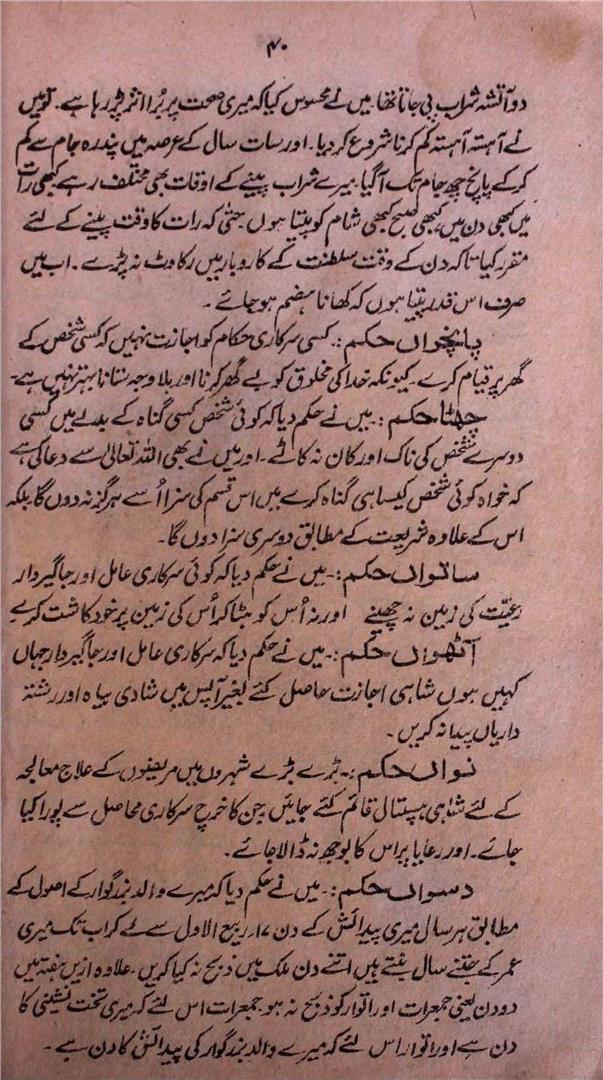 ۴۰
دو آتشہ شراب پی جاتا تھا۔ میں نے محسوس کیا کہ میری صحت پر بُرا اثر پڑ رہا ہے۔ تو میں
نے آہستہ آہستہ کم کرنا شروع کر دیا۔ اور سات سال کے عرصہ میں پندرہ جام سے کم
کر کے پانچ چھ جام تک آگیا۔ میرے شراب پینے کے اوقات بھی مختلف رہے کبھی رات
میں کبھی دن میں کبھی صبح کبھی شام کو پیتا ہوں۔ حتٰی کہ رات کا وقت پینے کے لئے
مقرر کیا تاکہ دن کے وقت سلطنت کے کاروبار میں رکاوٹ نہ پڑے۔ اب میں
صرف اس قدر پیتا ہوں کہ کھانا ہضم ہو جائے۔
پانچواں حکم:۔ کسی سرکاری حکام کو اجازت نہیں کہ کسی شخص کے
گھر پر قیام کرے۔ کیونکہ خدا کی مخلوق کو بے گھر کرنا اور بلاوجہ ستانا بہتر نہیں ہے۔
چھٹا حکم:۔ میں نے حکم دیا کہ کوئی شخص کسی گناہ کے بدلے میں کسی
دوسرے شخص کی ناک اور کان نہ کاٹے۔ اور میں نے بھی اللہ تعالیٰ سے دعا کی ہے
کہ خواہ کوئی شخص کیسا ہی گناہ کرے میں اس قسم کی سزا اُسے ہرگز نہ دوں گا، بلکہ
اس کے علاوہ شریعت کے مطابق دوسری سزا دوں گا۔
ساتواں حکم:۔ میں نے حکم دیا کہ کوئی سرکاری عامل اور جاگیردار
رعیّت کی زمین نہ چھینے اور نہ اُس کو ہٹا کر اُس کی زمین پر خود کاشت کرے
آٹھواں حکم:۔ میں نے حکم دیا کہ سرکاری عامل اور جاگیردار جہاں
کہیں ہوں شاہی اجازت حاصل کئے بغیر آپس میں شادی بیاہ اور رشتہ
داریاں پیدا نہ کریں۔
نواں حکم:۔ بڑے بڑے شہروں میں مریضوں کے علاج معالجہ
کے لئے شاہی ہسپتال قائم کئے جائیں جن کا خرچ سرکاری محاصل سے پورا کیا
جائے۔ اور رعایا پر اس کا بوجھ نہ ڈالا جائے۔
دسواں حکم:۔ میں نے حکم دیا کہ میرے والد بزرگوار کے اصول کے
مطابق ہر سال میری پیدائش کے دن ۱۷ ربیع الاول سے لے کر اب تک میری
عمر کے جتنے سال بنتے ہیں اتنے دن ملک میں ذبح نہ کیا کریں۔ علاوہ ازیں ہفتہ میں
دو دن یعنی جمعرات اور اتوار کو ذبح نہ ہو۔ جمعرات اس لئے کہ میری تخت نشینی کا
دن ہے اور اتوار اس لئے کہ میرے والد بزرگوار کی پیدائش کا دن ہے۔